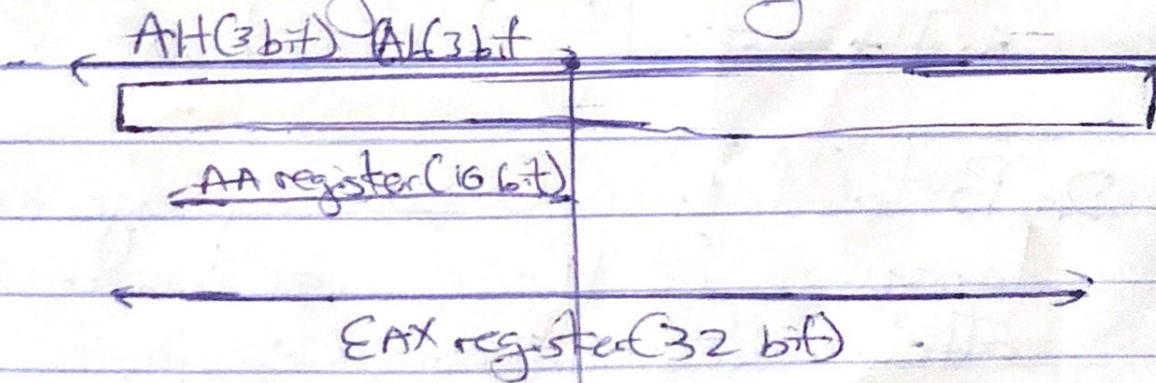 AH(3bit) AL(3bit
AA register(16 bit)
EAX register(32 bit)